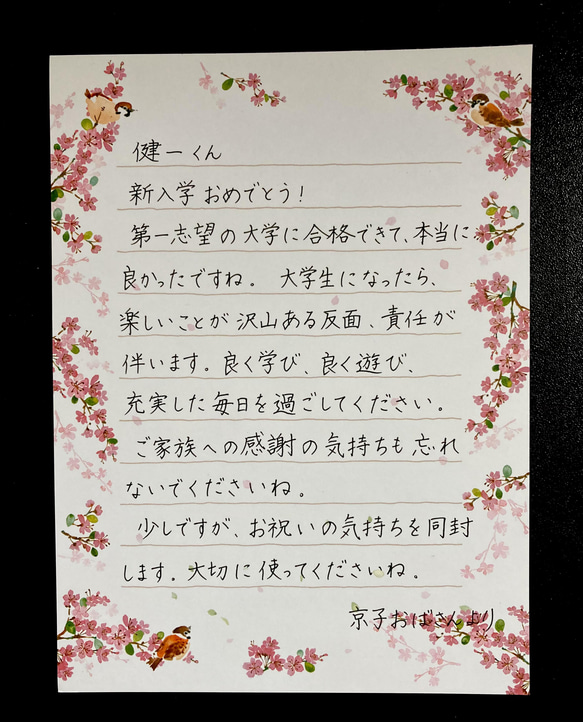 健一くん
新入学おめでとう!
第一志望の大学に合格できて、本当に
良かったですね。 大学生になったら、
楽しいことが沢山ある反面、責任が
伴います。良く学び、良く遊び、
充実した毎日を過ごしてください。
ご家族への感謝の気持ちも忘れ
ないでくださいね。
少しですが、お祝いの気持ちを同封
します。大切に使ってくださいね。
京子おばさんより